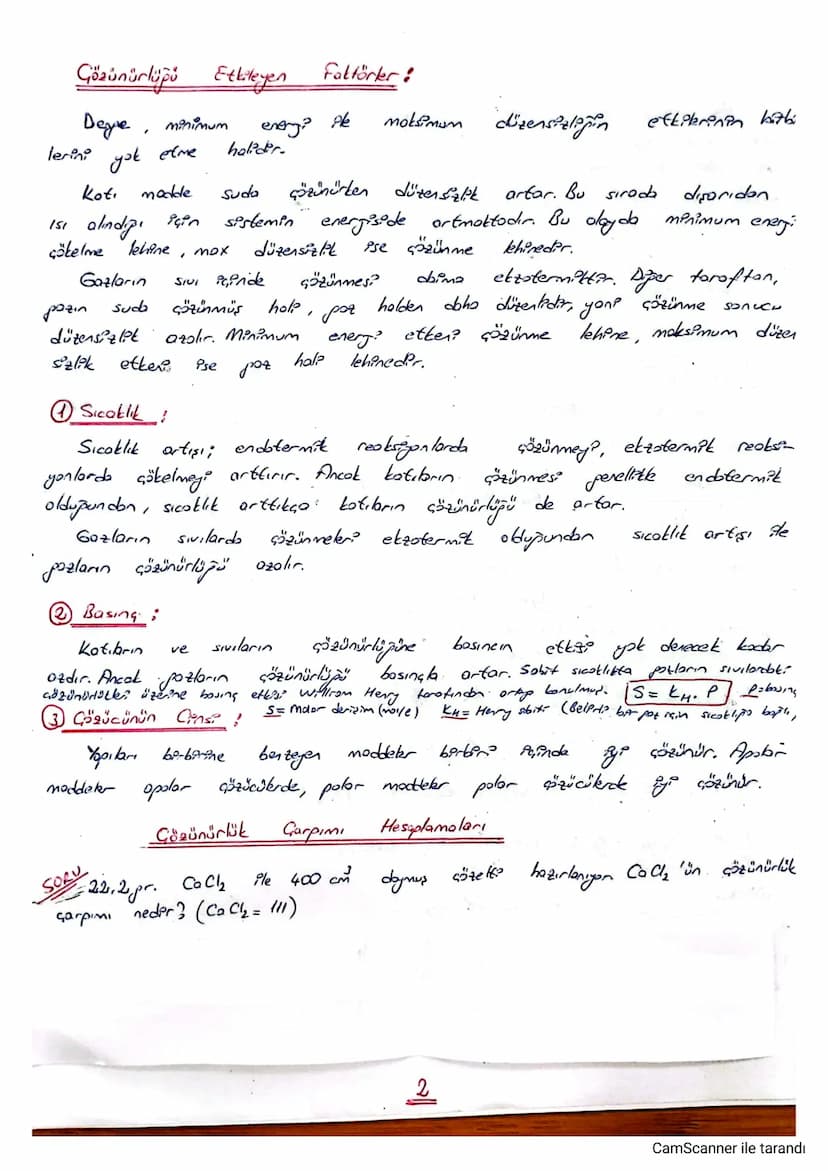 Çözünürlüğü Etkileyen Faktörler:
Denge, minimum enerji ile maksimum düzensizliğin etkilerinin birbi
lerini yok etme halidir.
Katı madde suda çözünürken düzensizlik artar. Bu sırada dışarıdan
ısı alındığı için sistemin enerjiside artmaktadır. Bu olayda minimum enerji
çökelme lehine, max düzensizlik ise çözünme lehinedir.
Gazların sıvı içinde çözünmesi daima ekzotermiktir. Diğer taraftan,
gazın suda çözünmüş hali, gaz halden daha düzenlidir, yani çözünme sonucu
düzensizlik azalır. Minimum enerji etkeni çözünme lehine, maksimum düzen
sizlik etkeni ise gaz hali lehinedir.
① Sıcaklık:
Sıcaklık artışı; endotermik reaksiyonlarda çözünmeyi, ekzotermik reaksi-
yonlarda çökelmeyi arttırır. Ancak katıların çözünmesi genellikle endotermik
olduğundan, sıcaklık arttıkça katıların çözünürlüğü de artar.
Gazların sıvılarda çözünmeleri ekzotermik olduğundan sıcaklık artışı ile
gazların çözünürlüğü azalır.
② Basınç:
Katıların ve sıvıların çözünürlüğüne basıncın etkisi yok denecek kadar
azdır. Ancak gazların çözünürlüğü basınçla artar. Sabit sıcaklıkta gazların sıvılardaki
çözünürlükleri üzerine basınç etkisi William Henry tarafından ortaya konulmuş. S = kH. P P=basınç
S= molar derişim (mol/l) KH= Henry sbiti (Belirli bir gaz için sıcaklığa bağlı,
③ Çözücünün Cinsi:
Yapıları birbirine benzeyen maddeler birbiri içinde iyi çözünür. Apolar
maddeler apolar çözücülerde, polar maddeler polar çözücülerde iyi çözünür.
Çözünürlük Çarpımı Hesaplamaları
SORU = 22,2 gr. CaCl2 ile 400 cm³ doymuş çözelti hazırlanıyor CaCl2 'ün çözünürlük
çarpımı nedir? (CaCl2 = 111)
2
CamScanner ile tarandı